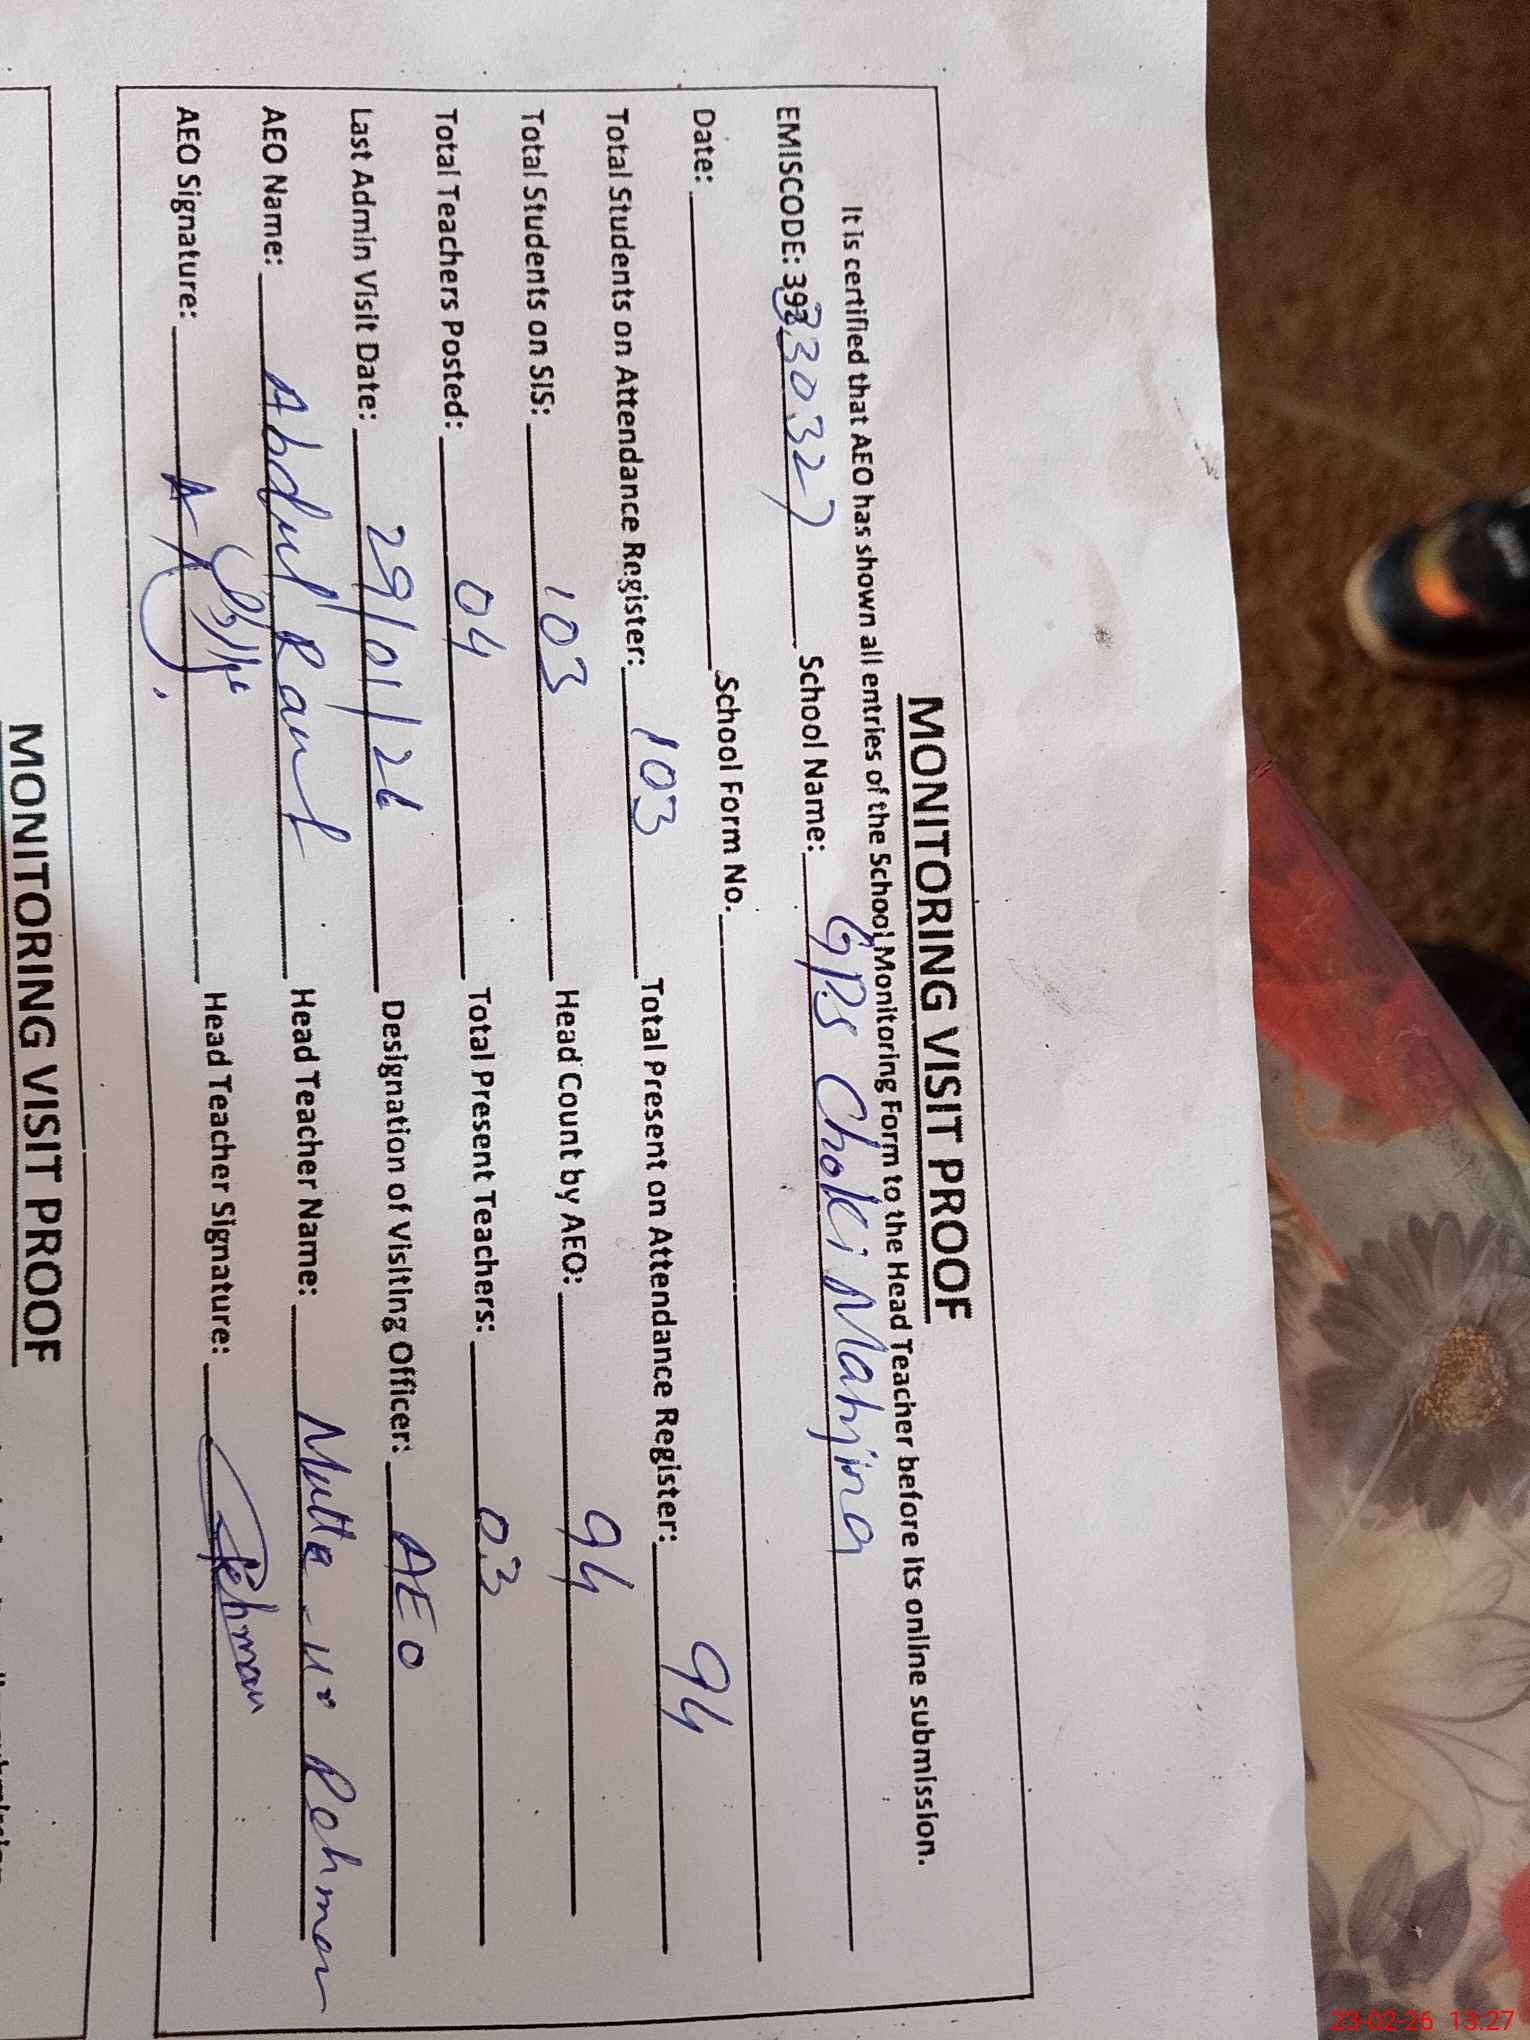 MONITORING VISIT PROOF
It is certified that AEO has shown all entries of the School Monitoring Form to the Head Teacher before its online submission.
EMISCODE: 393330327 School Name: GPS Choki Mahjing
Date: School Form No.
Total Students on Attendance Register: 103 Total Present on Attendance Register: 94
Total Students on SIS: 103 Head Count by AEO: 94
Total Teachers Posted: 04 Total Present Teachers: 03
Last Admin Visit Date: 29/01/26 Designation of Visiting Officer: AEO
AEO Name: Abdul Rauf Head Teacher Name: Mutta-ur Rehman
AEO Signature: Head Teacher Signature: Rehman
MONITORING VISIT PROOF
23-02-26 13:27